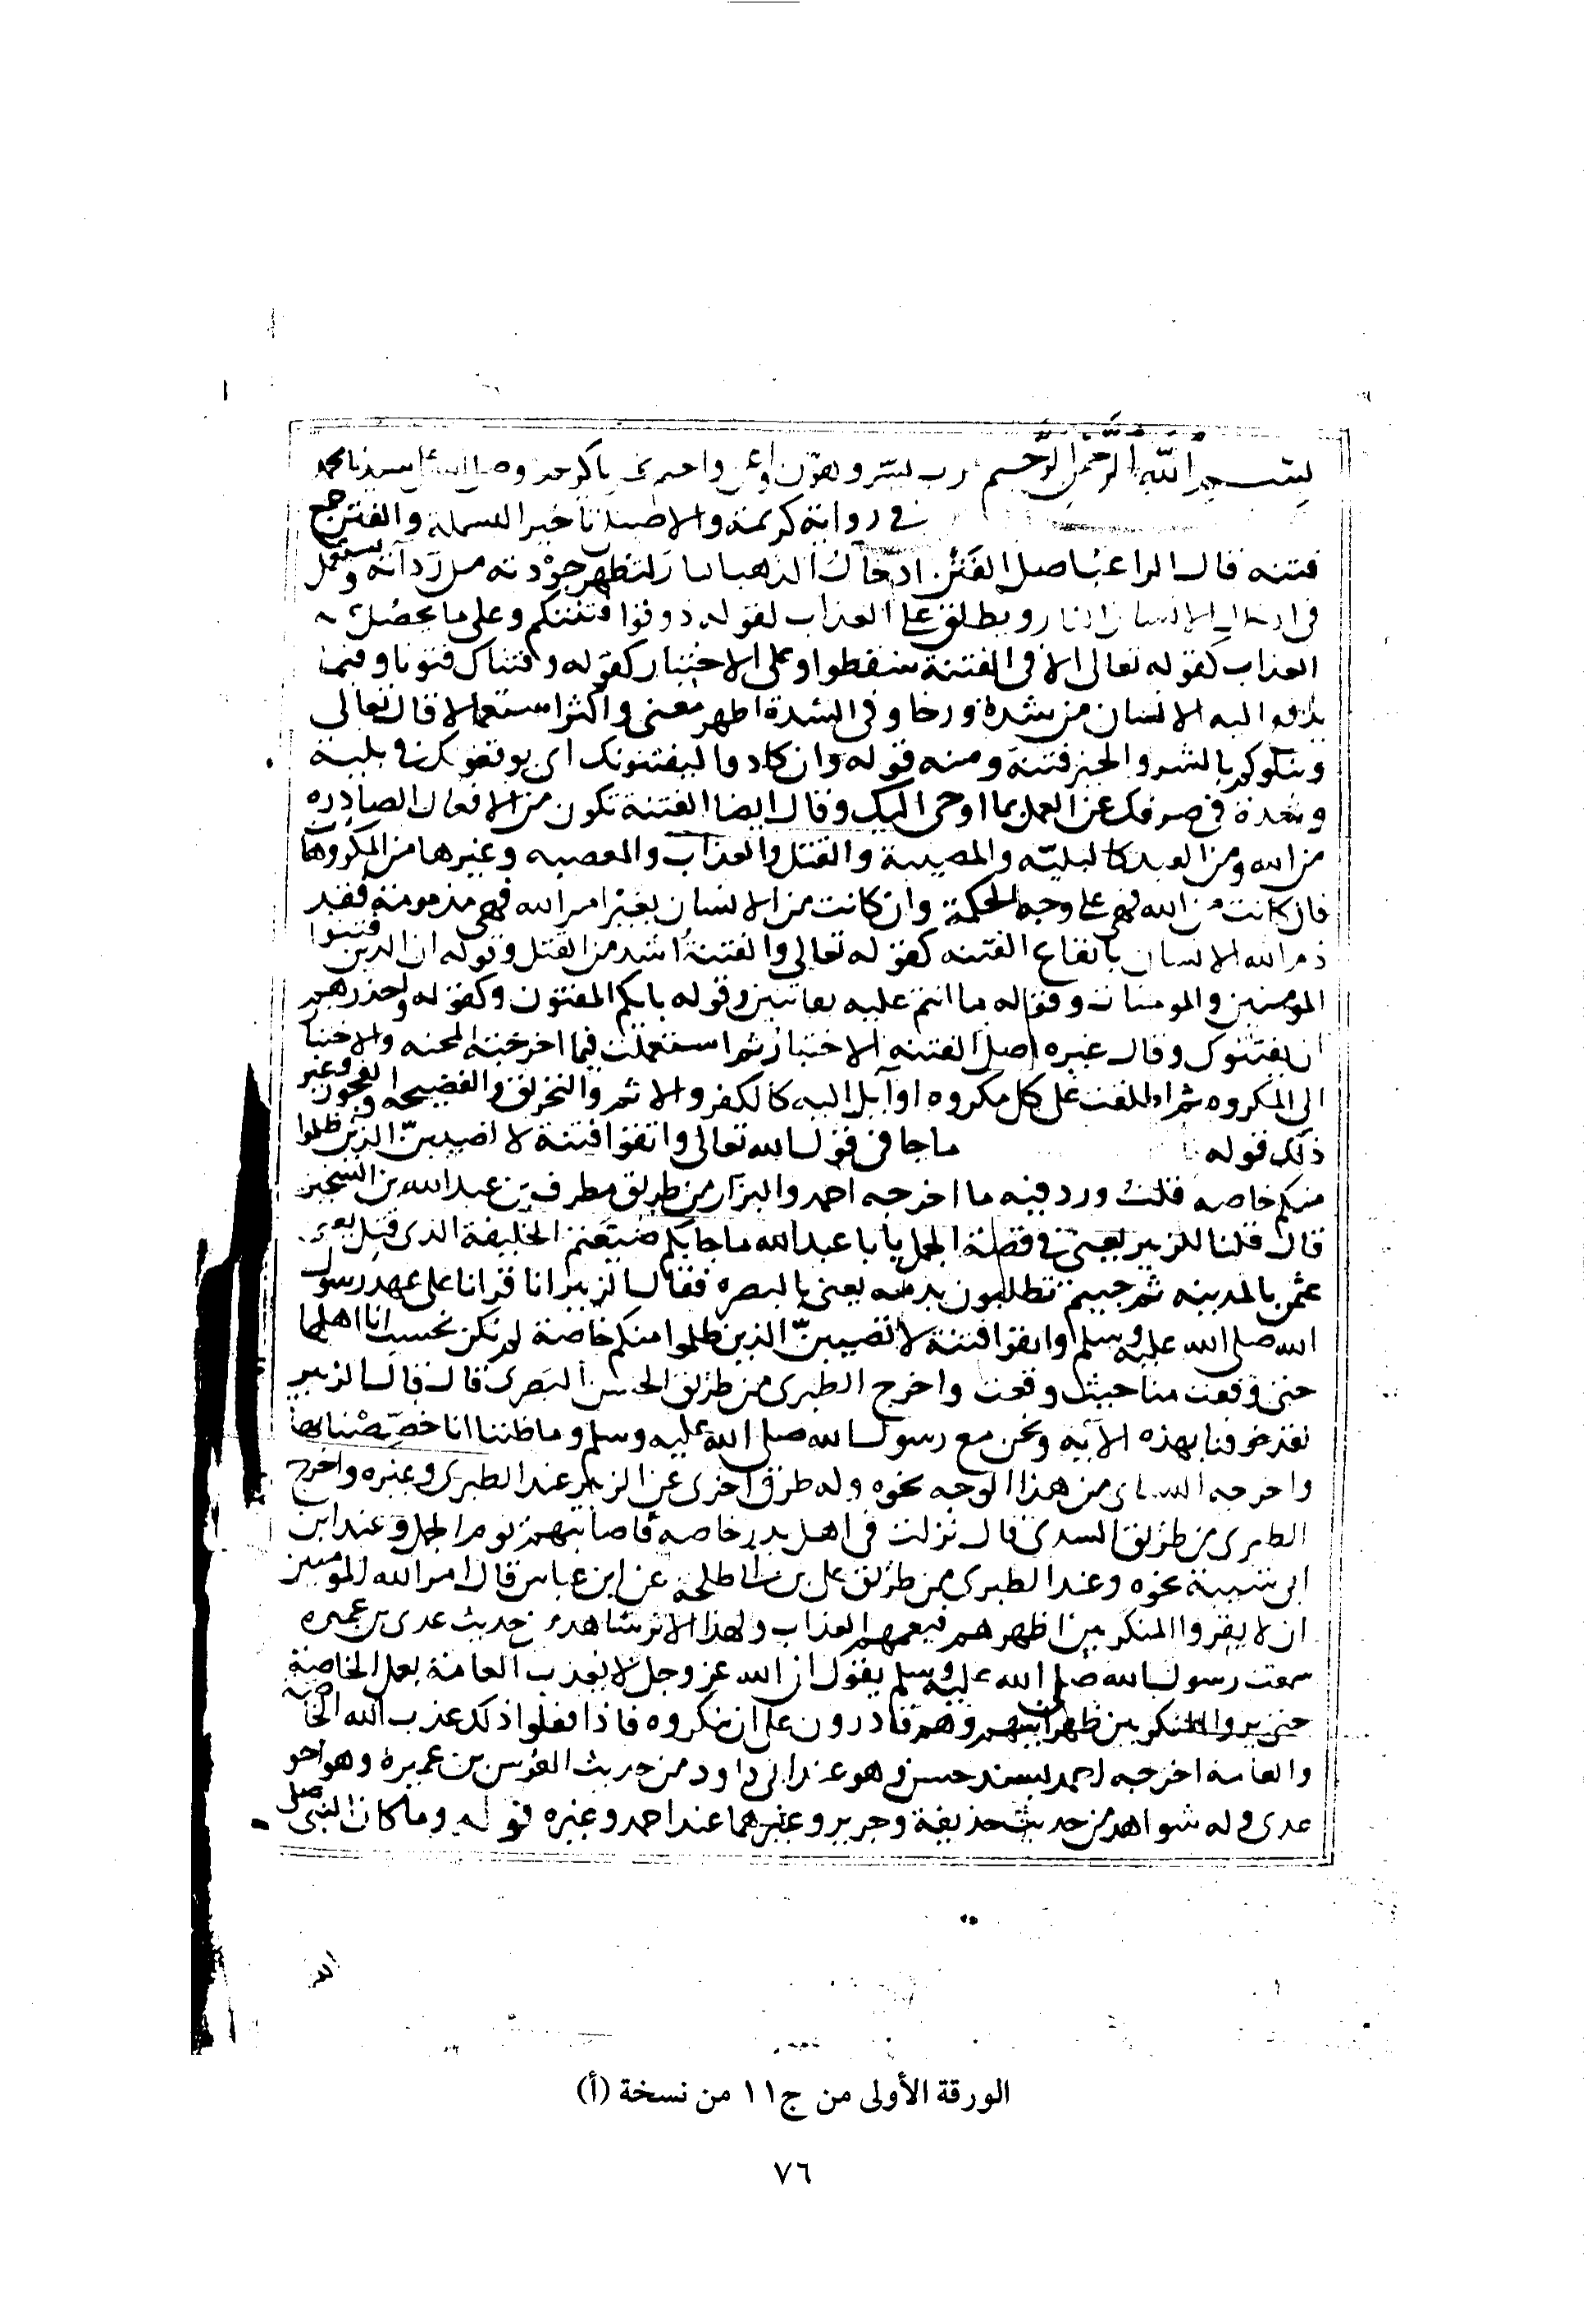 بسم الله الرحمن الرحيم رب يسر وصلى الله على سيدنا محمد
في رواية كريمة والاصيلي تاخير البسملة والفتن جمع
فتنه قال الراغب اصل الفتن ادخال الذهب النار لتظهر جودته من رداته ويستعمل
في ادخال الانسان النار ويطلق على العذاب لقوله ذوقوا فتنتكم وعلى ما يحصل
العذاب كقوله تعالى الا في الفتنة سقطوا وعلى الاختبار كقوله وفتناك فتونا وفيما
يدفع اليه الانسان من شدة ورخا وفي الشدة اظهر معنى واكثر استعمالا قال تعالى
ونبلوكم بالشر والخير فتنة ومنه قوله وان كادوا ليفتنونك اي يوقعونك في بلية
وشدة في صرفك عن العمل بما اوحي اليك وقال ايضا الفتنة تكون من الافعال الصادره
من الله ومن العبد كالبليه والمصيبة والقتل والعذاب والمعصيه وغيرها من المكروهات
فان كانت من الله فهي على وجه الحكمة وان كانت من الانسان بغير امر الله فهي مذمومة فقد
ذم الله الانسان بايقاع الفتنه كقوله تعالى والفتنة اشد من القتل وقوله ان الذين فتنوا
المومنين والمومنات وقوله ما انتم عليه بفاتنين وقوله بايكم المفتون وكقوله واحذرهم
ان يفتنوك وقال غيره اصل الفتنه الاختبار ثم استعملت فيما اخرجته المحنه والاختبار
الى المكروه ثم اطلقت على كل مكروه او آيل اليه كالكفر والاثم والتحريق والفضيحه والفجور وغير
ذلك قوله ما جا في قول الله تعالى واتقوا فتنة لا تصيبن الذين ظلموا
منكم خاصه قلت ورد فيه ما اخرجه احمد والبزار من طريق مطرف بن عبد الله بن الشخير
قال قلنا للزبير يعني في قصة الجمل يا با عبد الله ما جا بكم ضيعتم الخليفة الذي قتل يعني
عثمن بالمدينه ثم جيتم تطلبون بدمه يعني بالبصره فقال الزبير انا قرانا على عهد رسول
الله صلى الله عليه وسلم واتقوا فتنة لا تصيبن الذين ظلموا منكم خاصة لم نكن نحسب انا اهلها
حتى وقعت منا حيث وقعت واخرج الطبري من طريق الحسن البصري قال قال الزبير
لقد خوفنا بهذه الآيه ونحن مع رسول الله صلى الله عليه وسلم وما ظننا انا خصصنا بها
واخرجه النساى من هذا الوجه نحوه وله طرق اخرى عن الزبير عند الطبري وغيره واخرج
الطبري من طريق السدي قال نزلت في اهل بدر خاصه فاصابتهم يوم الجمل وعند ابن
ابي شيبة نحوه وعند الطبري من طريق علي بن ابي طلحة عن ابن عباس قال امر الله المومنين
ان لا يقروا المنكر بين اظهرهم فيعمهم العذاب ولهذا الاثر شاهد من حديث عدي بن عميره
سمعت رسول الله صلى الله عليه وسلم يقول ان الله عز وجل لا يعذب العامة بعمل الخاصة
حتى يروا المنكر بين ظهرانيهم وهم قادرون على ان ينكروه فاذا فعلوا ذلك عذب الله الخاصه
والعامة اخرجه احمد بسند حسن وهو عند ابي داود من حديث العرس بن عميرة وهو اخو
عدي وله شواهد من حديث حذيفة وجرير وغيرهما عند احمد وغيره قوله وما كان النبي صلى
الورقة الأولى من ج١١ من نسخة (أ)
٧٦